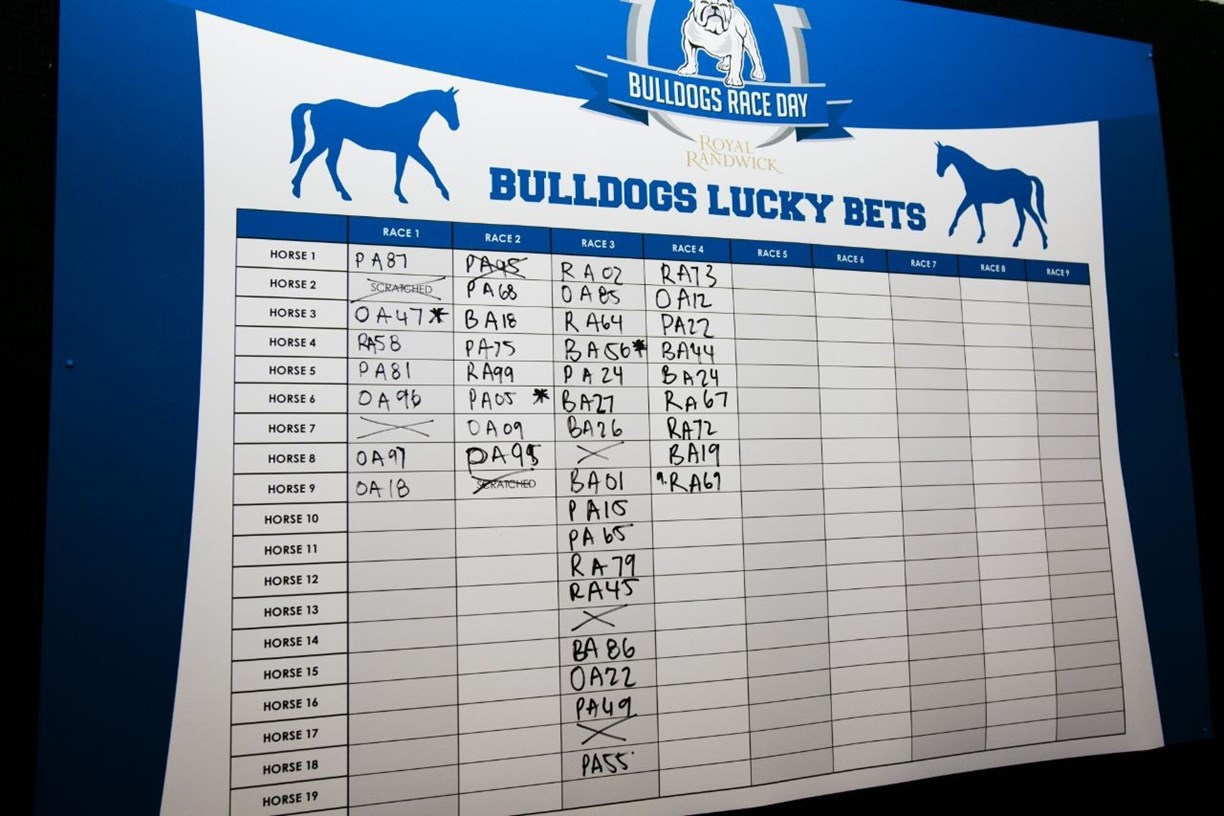 BULLDOGS RACE DAY
ROYAL
RANDWICK
BULLDOGS LUCKY BETS
RACE 1 RACE 2 RACE 3 RACE 4 RACE 5 RACE 6 RACE 7 RACE 8 RACE 9
HORSE 1 PA87 PA95 RA02 RA73
HORSE 2 SCRATCHED PA68 OA85 OA12
HORSE 3 OA47* BA18 RA64 PA22
HORSE 4 RA58 PA75 BA56* BA44
HORSE 5 PA81 RA99 PA24 BA24
HORSE 6 OA96 PA05 * BA27 RA67
HORSE 7 OA09 BA26 RA72
HORSE 8 OA97 PA95 BA19
HORSE 9 OA18 SCRATCHED BA01 9.RA69
HORSE 10 PA15
HORSE 11 PA65
HORSE 12 RA79
HORSE 13 RA45
HORSE 14
HORSE 15 BA86
HORSE 16 OA22
HORSE 17 PA49
HORSE 18
HORSE 19 PA55